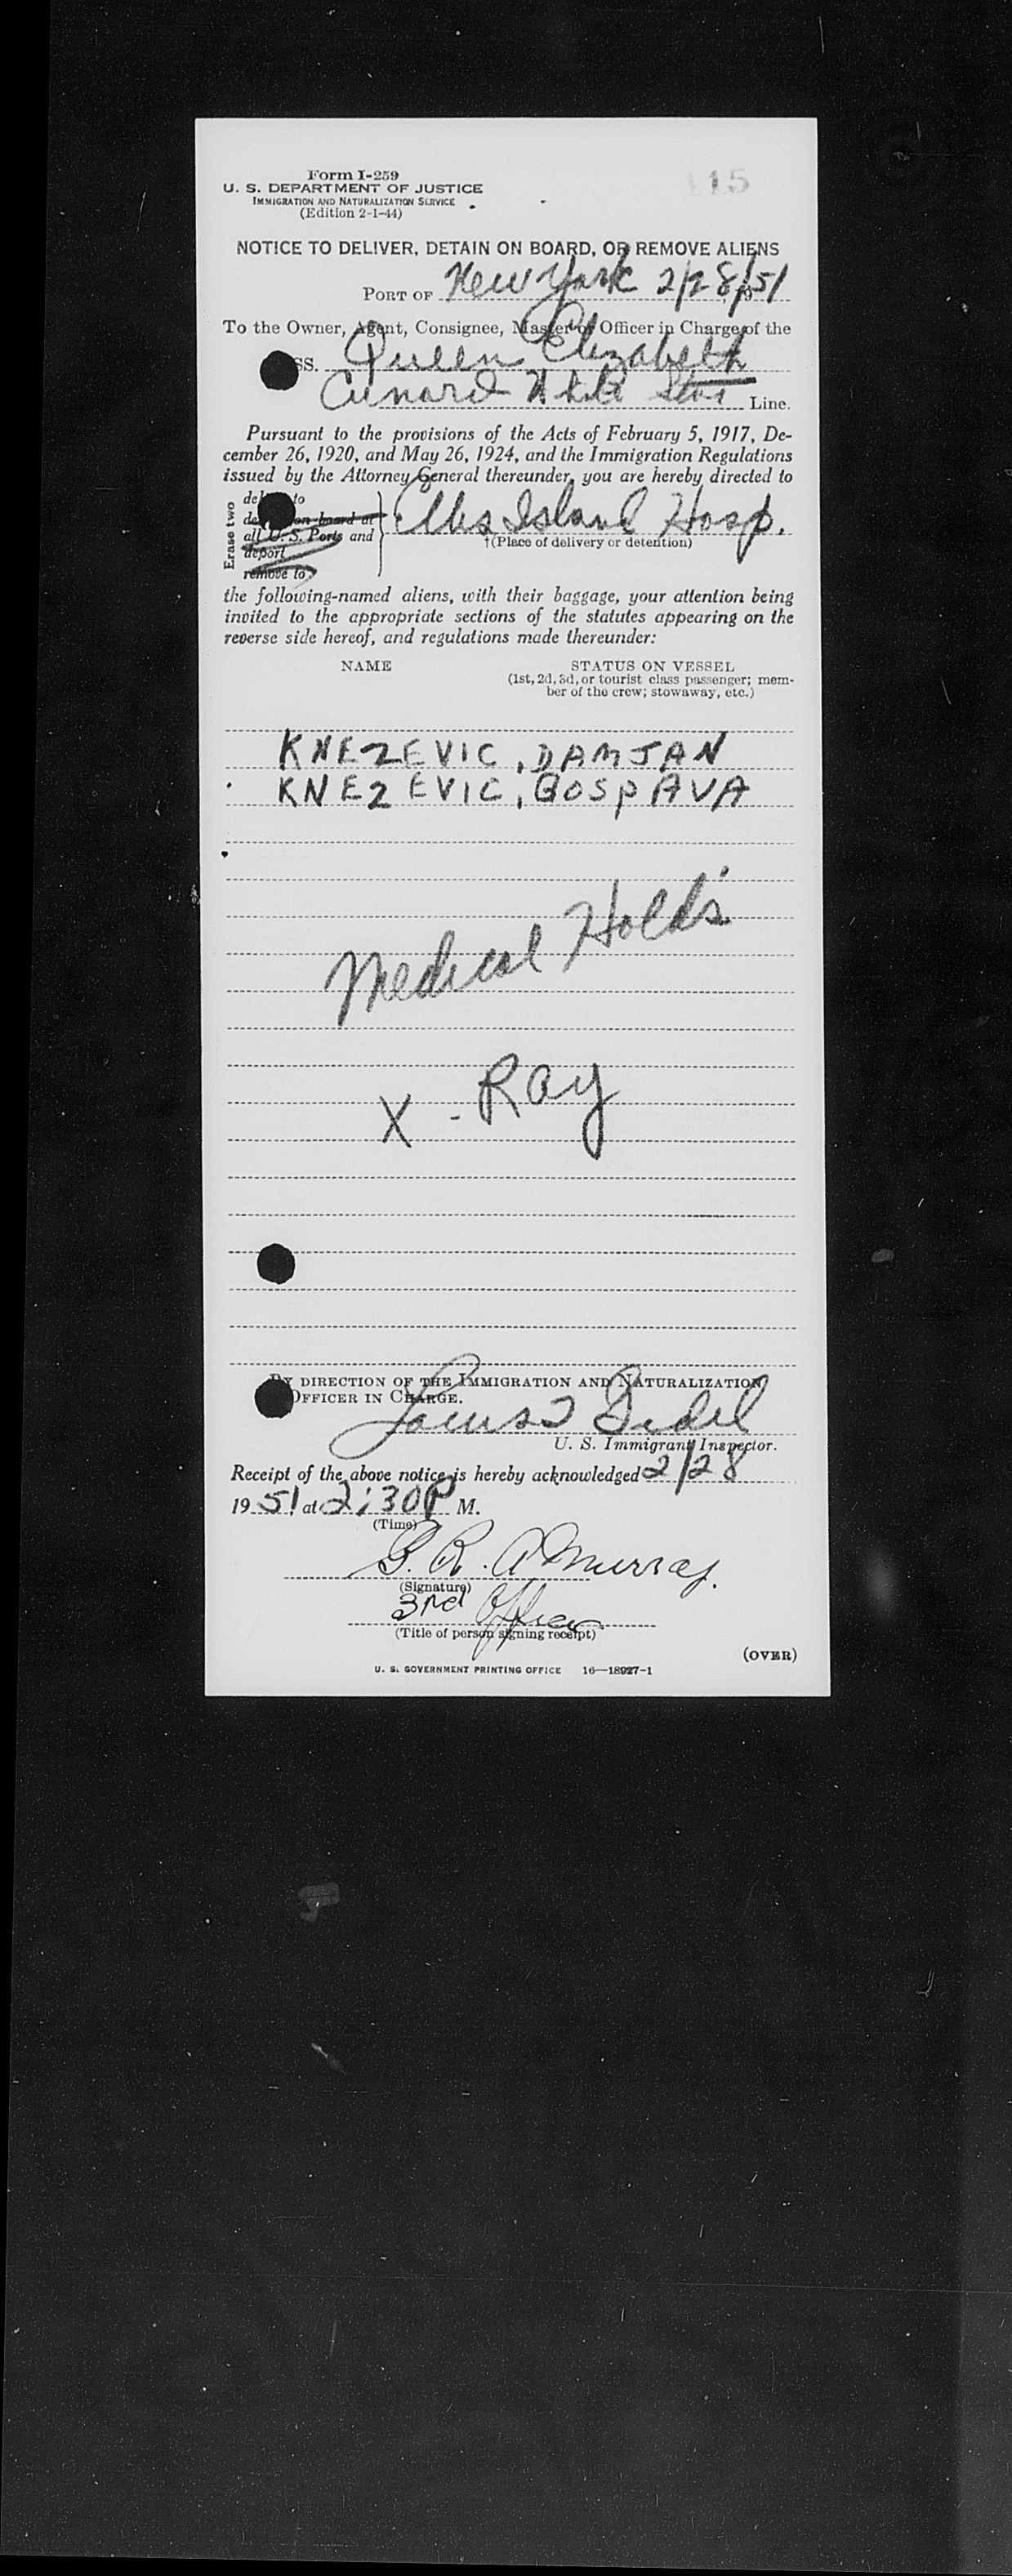 Form I-259
U. S. DEPARTMENT OF JUSTICE
IMMIGRATION AND NATURALIZATION SERVICE
(Edition 2-1-44)
15
NOTICE TO DELIVER, DETAIN ON BOARD, OR REMOVE ALIENS
PORT OF New York 2/28/51
To the Owner, Agent, Consignee, Master or Officer in Charge of the
SS. Queen Elizabeth
Cunard White Star Line.
Pursuant to the provisions of the Acts of February 5, 1917, De-
cember 26, 1920, and May 26, 1924, and the Immigration Regulations
issued by the Attorney General thereunder, you are hereby directed to
Erase two
to
on board at
all U. S. Ports and
deport
remove to
Ellis Island Hosp.
†(Place of delivery or detention)
the following-named aliens, with their baggage, your attention being
invited to the appropriate sections of the statutes appearing on the
reverse side hereof, and regulations made thereunder:
NAME
STATUS ON VESSEL
(1st, 2d, 3d, or tourist class passenger; mem-
ber of the crew; stowaway, etc.)
KNEZEVIC, DAMJAN
KNEZEVIC, GOSPAVA
Medical Holds
X-Ray
BY DIRECTION OF THE IMMIGRATION AND NATURALIZATION
OFFICER IN CHARGE.
U. S. Immigrant Inspector.
Receipt of the above notice is hereby acknowledged 2/28
1951 at 2:30 P M.
(Time)
G. R. A Murray.
(Signature)
3rd Officer
(Title of person signing receipt)
(OVER)
U. S. GOVERNMENT PRINTING OFFICE 16—18927-1